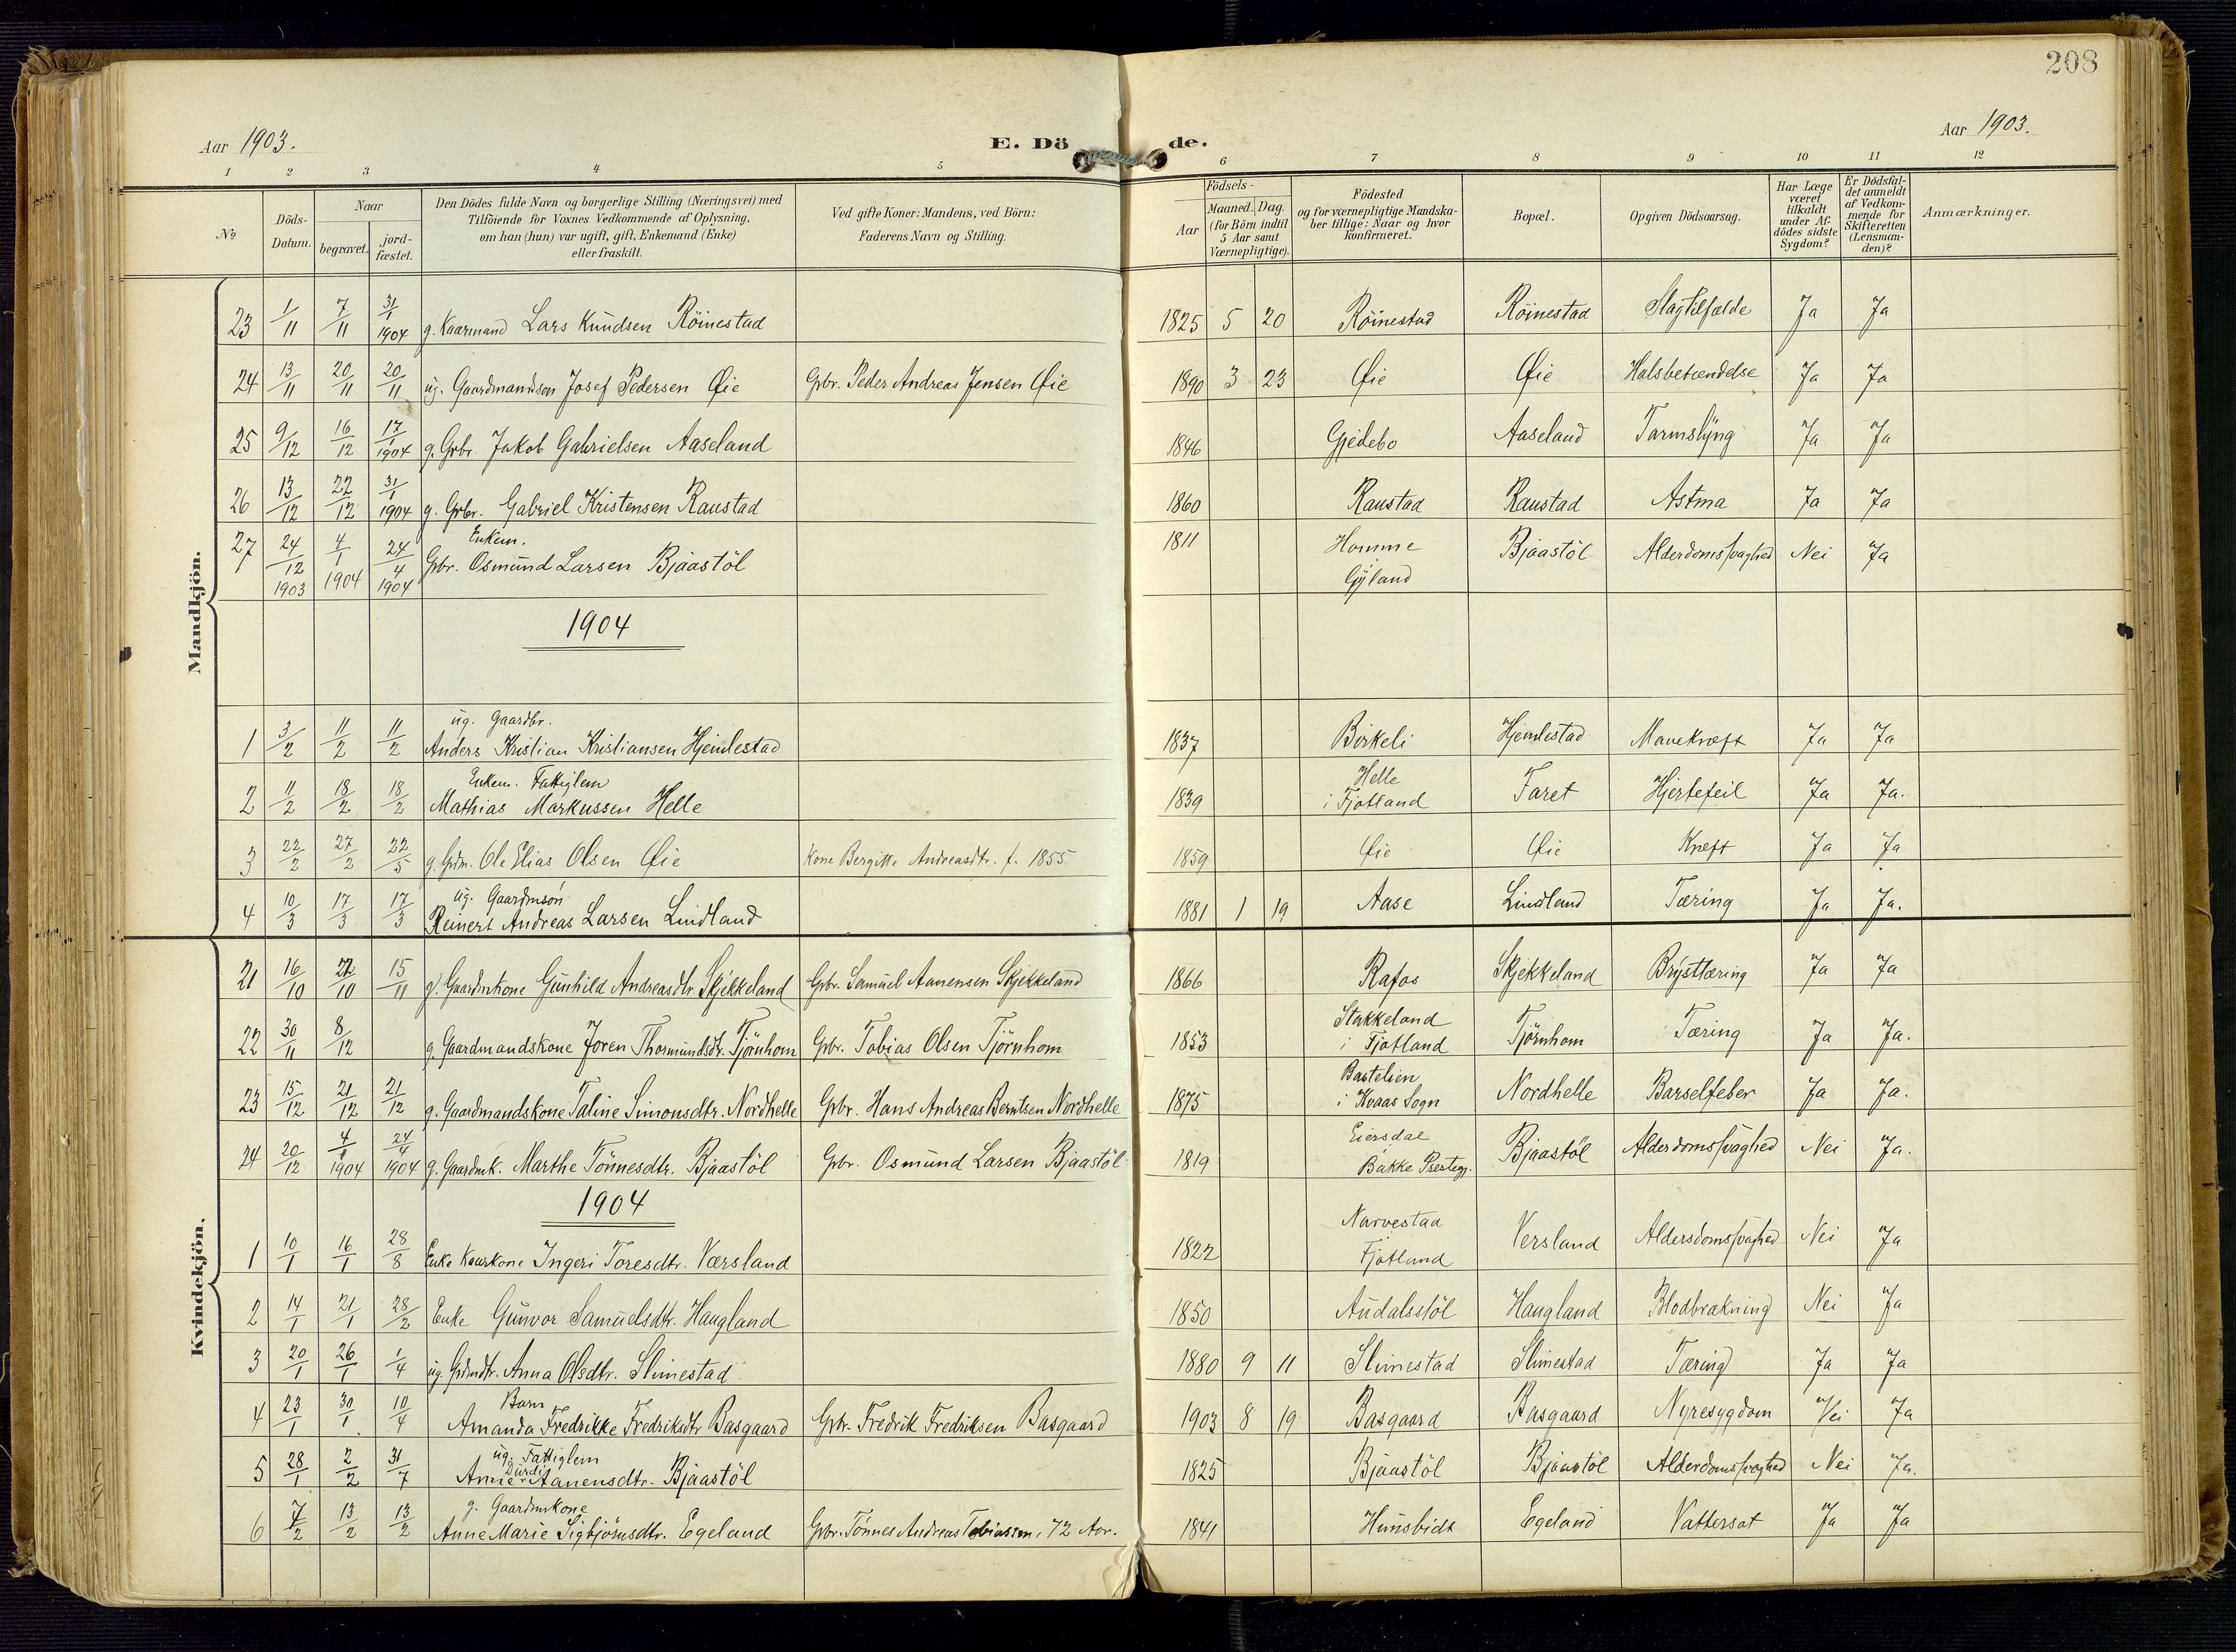 208
Aar 1903.
E. Dö de.
Aar 1903.
1 2 3 4 5 6 7 8 9 10 11 12
No
Döds-Datum.
Naar
begravet.
jord-fæstet.
Den Dödes fulde Navn og borgerlige Stilling (Næringsvei) med
Tilföiende for Voxnes Vedkommende af Oplysning,
om han (hun) var ugift, gift, Enkemand (Enke)
eller fraskilt.
Ved gifte Koner: Mandens, ved Börn:
Faderens Navn og Stilling.
Födsels-
Aar
Maaned. Dag.
(for Börn indtil
5 Aar samt
Værnepligtige).
Födested
og for værnepligtige Mandska-
ber tillige: Naar og hvor
konfirmeret.
Bopæl.
Opgiven Dödsaarsag.
Har Læge
været
tilkaldt
under Af-
dödes sidste
Sygdom?
Er Dödsfal-
det anmeldt
af Vedkom-
mende for
Skifteretten
(Lensman-
den)?
Anmærkninger.
Mandkjön.
23 1/11 7/11 31/1 1904 g. Kaarmand Lars Knudsen Röinestad 1825 5 20 Röinestad Röinestad Slagtilfælde Ja Ja
24 13/11 20/11 20/11 ug. Gaardmandsøn Josef Pedersen Øie Gbr. Peder Andreas Jensen Øie 1890 3 23 Øie Øie Halsbetændelse Ja Ja
25 9/12 16/12 17/1 1904 g. Gbr. Jakob Gabrielsen Aaseland 1846 Gjedebo Aaseland Tarmslyng Ja Ja
26 13/12 22/12 31/1 1904 g. Gbr. Gabriel Kristensen Raustad 1860 Raustad Raustad Astma Ja Ja
27 24/12 1903 4/1 1904 24/4 1904 Enkem.
Gbr. Osmund Larsen Bjaastöl 1811 Homme
Gyland Bjaastöl Alderdomssvaghed Nei Ja
1904
1 3/2 11/2 11/2 ug. Gaardbr.
Anders Kristian Kristiansen Hjemlestad 1837 Birkeli Hjemlestad Mavekræft Ja Ja
2 11/2 18/2 18/2 Enkem. Fattiglem
Mathias Markussen Helle 1839 Helle
i Fjotland Faret Hjertefeil Ja Ja.
3 22/2 27/2 22/5 g. Grdm. Ole Elias Olsen Øie Kone Bergitte Andreasdtr. f. 1855 1859 Øie Øie Kræft Ja Ja
4 10/3 17/3 17/3 ug. Gaardmsøn
Reinert Andreas Larsen Lindland 1881 1 19 Aase Lindland Tæring Ja Ja.
Kvindekjön.
21 16/10 22/10 15/11 g. Gaardmkone Gunhild Andreasdtr Skjekkeland Gbr. Samuel Aanensen Skjekkeland 1866 Rafos Skjekkeland Brysttæring Ja Ja
22 30/11 8/12 g. Gaardmandskone Joren Thormundsdtr. Tjörnhom Gbr. Tobias Olsen Tjörnhom 1853 Stakkeland
i Fjotland Tjørnhom Tæring Ja Ja.
23 15/12 21/12 21/12 g. Gaardmandskone Taline Simonsdtr. Nordhelle Gbr. Hans Andreas Berntsen Nordhelle 1875 Bastelien
i Kvaas Sogn Nordhelle Barselfeber Ja Ja.
24 20/12 4/1 1904 24/4 1904 g. Gaardmk. Marthe Tönnesdtr. Bjaastöl Gbr. Osmund Larsen Bjaastöl 1819 Eiersdal
Bakke Prestegj. Bjaastöl Alderdomssvaghed Nei Ja.
1904
1 10/1 16/1 28/8 Enke Kaarkone Ingeri Toresdtr. Værsland 1822 Narvestad
Fjotland Versland Aldersdomssvaghed Nei Ja
2 14/1 21/1 28/2 Enke Gunvor Samuelsdtr. Haugland 1850 Audalsstöl Haugland Blodbrækning Nei Ja
3 20/1 26/1 1/4 ug. Grdmdtr. Anna Olsdtr. Slimestad 1880 9 11 Slimestad Slimestad Tæring Ja Ja
4 23/1 30/1 10/4 Barn
Amanda Fredrikke Fredriksdtr Basgaard Gbr. Fredrik Fredriksen Basgaard 1903 8 19 Basgaard Basgaard Nyresygdom Nei Ja
5 28/1 2/2 31/7 ug. Fattiglem
Durdi
Anne Aanensdtr. Bjaastöl 1825 Bjaastöl Bjaastöl Alderdomssvaghed Nei Ja.
6 7/2 13/2 13/2 g. Gaardmkone
Anne Marie Sigbjörnsdtr. Egeland Gbr. Tönnes Andreas Tobiassen, 72 Aar. 1841 Hunsbidt Egeland Vattersot Ja Ja